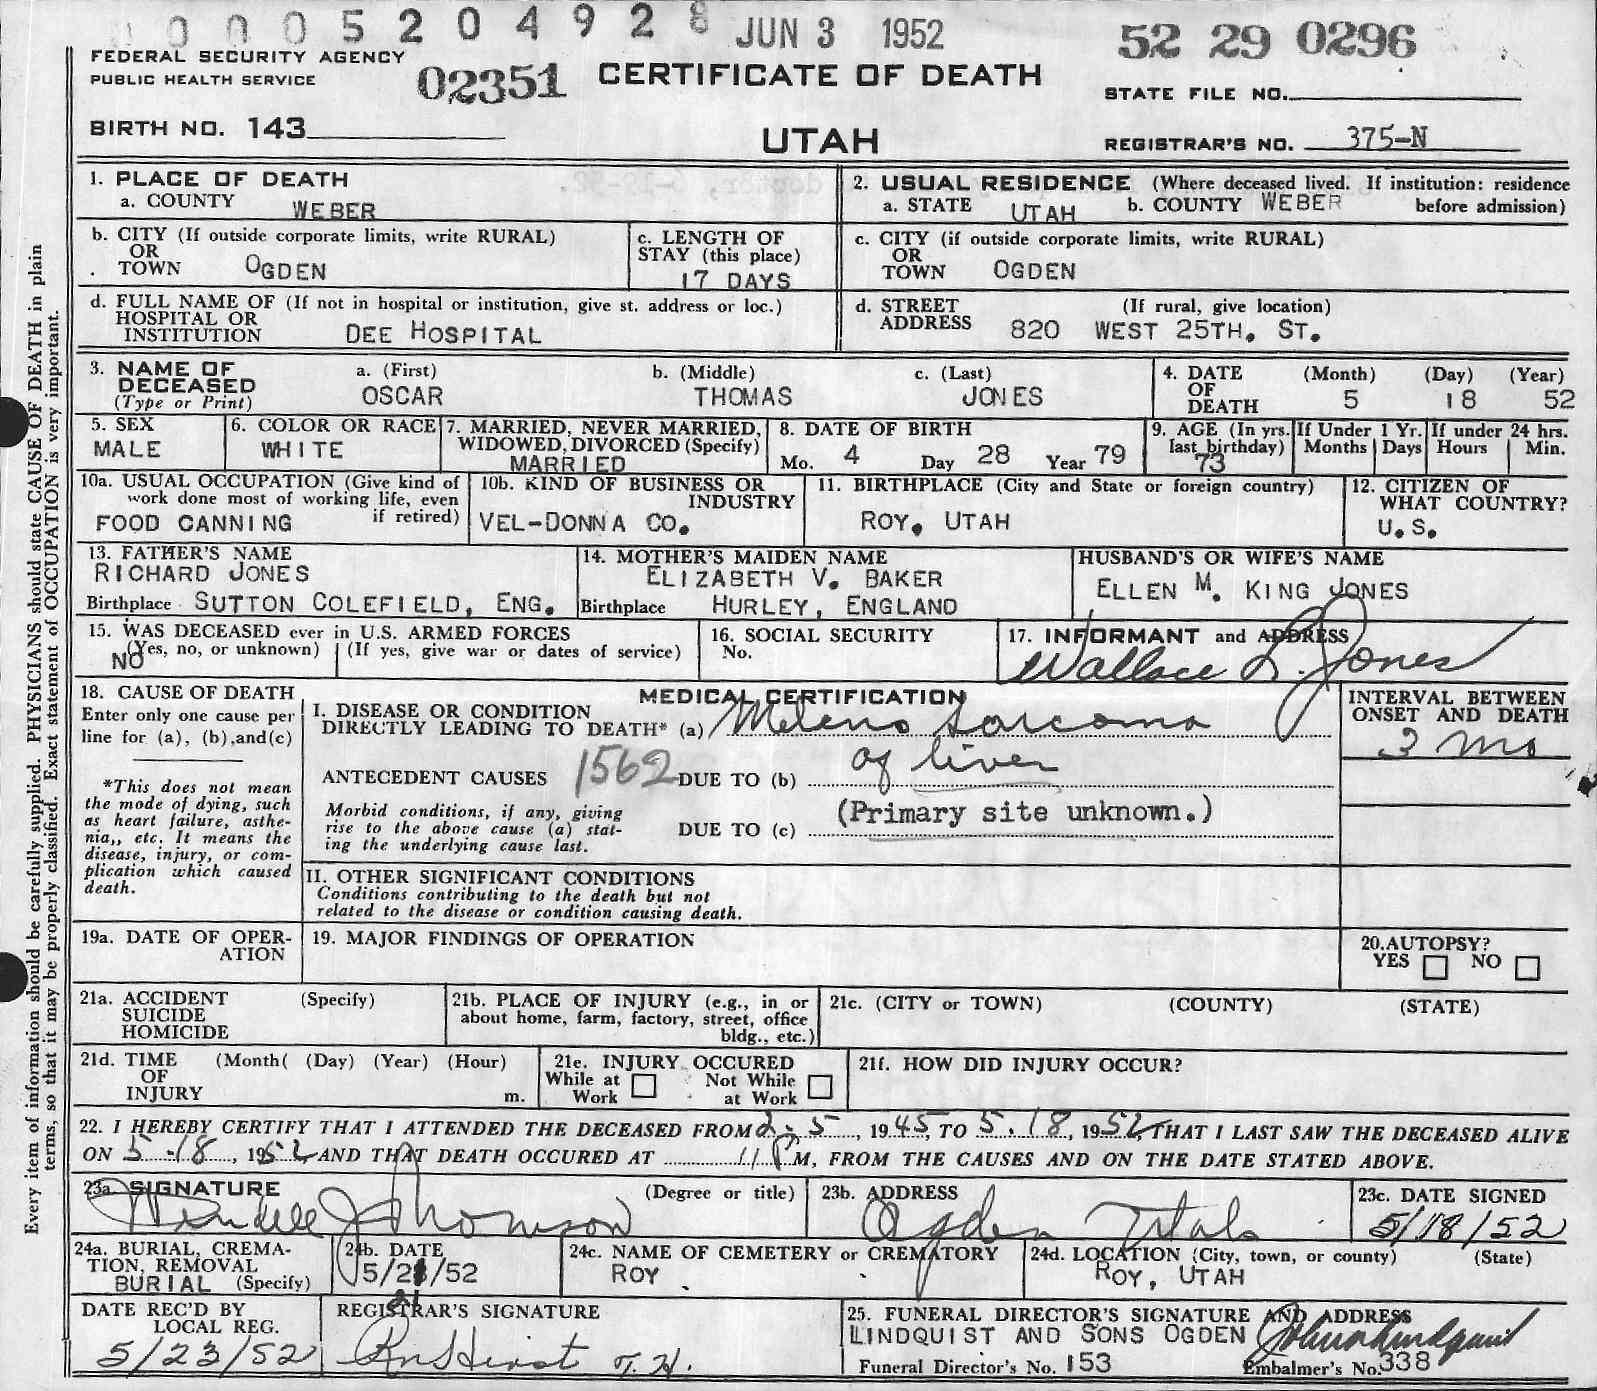 0 0 0 5 2 0 4 9 2 8 JUN 3 1952 52 29 0296
FEDERAL SECURITY AGENCY
PUBLIC HEALTH SERVICE
02351 CERTIFICATE OF DEATH
STATE FILE NO.
BIRTH NO. 143
UTAH
REGISTRAR'S NO. 375-N
1. PLACE OF DEATH
a. COUNTY WEBER
2. USUAL RESIDENCE (Where deceased lived. If institution: residence before admission)
a. STATE UTAH b. COUNTY WEBER
b. CITY (If outside corporate limits, write RURAL)
OR
TOWN OGDEN
c. LENGTH OF
STAY (this place)
17 DAYS
c. CITY (if outside corporate limits, write RURAL)
OR
TOWN OGDEN
d. FULL NAME OF (If not in hospital or institution, give st. address or loc.)
HOSPITAL OR
INSTITUTION DEE HOSPITAL
d. STREET (If rural, give location)
ADDRESS 820 WEST 25TH. ST.
3. NAME OF
DECEASED
(Type or Print)
a. (First) b. (Middle) c. (Last)
OSCAR THOMAS JONES
4. DATE (Month) (Day) (Year)
OF
DEATH 5 18 52
5. SEX
MALE
6. COLOR OR RACE
WHITE
7. MARRIED, NEVER MARRIED,
WIDOWED, DIVORCED (Specify)
MARRIED
8. DATE OF BIRTH
Mo. 4 Day 28 Year 79
9. AGE (In yrs. last birthday)
73
If Under 1 Yr.
Months Days
If under 24 hrs.
Hours Min.
10a. USUAL OCCUPATION (Give kind of
work done most of working life, even
if retired)
FOOD CANNING
10b. KIND OF BUSINESS OR
INDUSTRY
VEL-DONNA CO.
11. BIRTHPLACE (City and State or foreign country)
ROY, UTAH
12. CITIZEN OF
WHAT COUNTRY?
U.S.
13. FATHER'S NAME
RICHARD JONES
Birthplace SUTTON COLEFIELD, ENG.
14. MOTHER'S MAIDEN NAME
ELIZABETH V. BAKER
Birthplace HURLEY, ENGLAND
HUSBAND'S OR WIFE'S NAME
ELLEN M. KING JONES
15. WAS DECEASED ever in U.S. ARMED FORCES
(Yes, no, or unknown) (If yes, give war or dates of service)
NO
16. SOCIAL SECURITY
No.
17. INFORMANT and ADDRESS
Wallace L. Jones
18. CAUSE OF DEATH
Enter only one cause per
line for (a), (b),and(c)
*This does not mean
the mode of dying, such
as heart failure, asthe-
nia,, etc. It means the
disease, injury, or com-
plication which caused
death.
MEDICAL CERTIFICATION
I. DISEASE OR CONDITION
DIRECTLY LEADING TO DEATH* (a) Meleno Sarcoma
of liver
ANTECEDENT CAUSES 1562 DUE TO (b)
Morbid conditions, if any, giving
rise to the above cause (a) stat-
ing the underlying cause last.
(Primary site unknown.)
DUE TO (c)
INTERVAL BETWEEN
ONSET AND DEATH
3 Mo
II. OTHER SIGNIFICANT CONDITIONS
Conditions contributing to the death but not
related to the disease or condition causing death.
19a. DATE OF OPER-
ATION
19. MAJOR FINDINGS OF OPERATION
20.AUTOPSY?
YES NO
21a. ACCIDENT (Specify)
SUICIDE
HOMICIDE
21b. PLACE OF INJURY (e.g., in or
about home, farm, factory, street, office
bldg., etc.)
21c. (CITY or TOWN) (COUNTY) (STATE)
21d. TIME (Month( (Day) (Year) (Hour)
OF
INJURY m.
21e. INJURY OCCURED
While at Work
Not While at Work
21f. HOW DID INJURY OCCUR?
22. I HEREBY CERTIFY THAT I ATTENDED THE DECEASED FROM 2-5, 1945, TO 5.18, 1952, THAT I LAST SAW THE DECEASED ALIVE
ON 5-18, 1952, AND THAT DEATH OCCURED AT 11 PM, FROM THE CAUSES AND ON THE DATE STATED ABOVE.
23a. SIGNATURE (Degree or title)
Wendell J Thomson
23b. ADDRESS
Ogden Utah
23c. DATE SIGNED
5/18/52
24a. BURIAL, CREMA-
TION, REMOVAL
BURIAL (Specify)
24b. DATE
5/21/52
21
24c. NAME OF CEMETERY or CREMATORY
ROY
24d. LOCATION (City, town, or county) (State)
ROY, UTAH
DATE REC'D BY
LOCAL REG.
5/23/52
REGISTRAR'S SIGNATURE
25. FUNERAL DIRECTOR'S SIGNATURE AND ADDRESS
LINDQUIST AND SONS OGDEN
Funeral Director's No. 153 Embalmer's No. 338
Every item of information should be carefully supplied. PHYSICIANS should state CAUSE OF DEATH in plain
terms, so that it may be properly classified. Exact statement of OCCUPATION is very important.